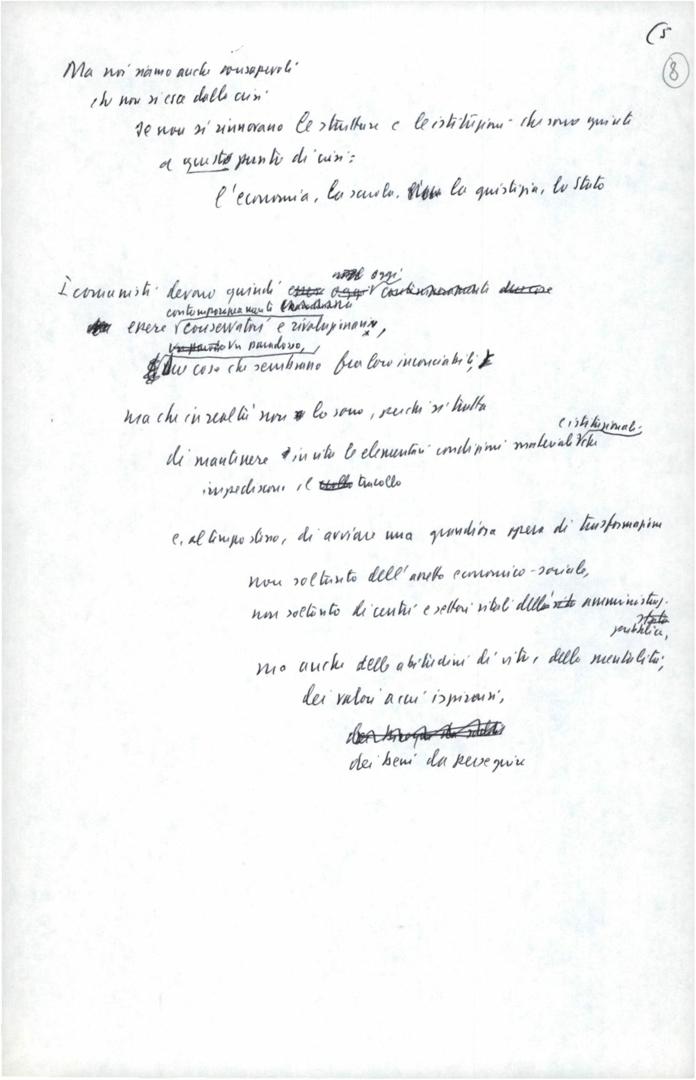 (5
8
Ma noi siamo anche consapevoli
che non si esce dalla crisi
se non si rinnovano le strutture e le istituzioni che sono giunte
a questo punto di crisi:
l'economia, la scuola, la giustizia, lo Stato
oggi
I comunisti devono quindi
contemporaneamente
essere conservatori e rivoluzionari,
un paradosso,
due cose che sembrano fra loro inconciabili,
ma che in realtà non lo sono, perché si tratta
e istituzionali
di mantenere in vita le elementari condizioni materiali che
impediscono il tracollo
e, al tempo stesso, di avviare una grandiosa opera di trasformazione
non soltanto dell'assetto economico-sociale,
non soltanto di centri e settori vitali dell' amministraz.
pubblica,
ma anche delle abitudini di vita, della mentalità,
dei valori a cui ispirarsi,
dei beni da perseguire